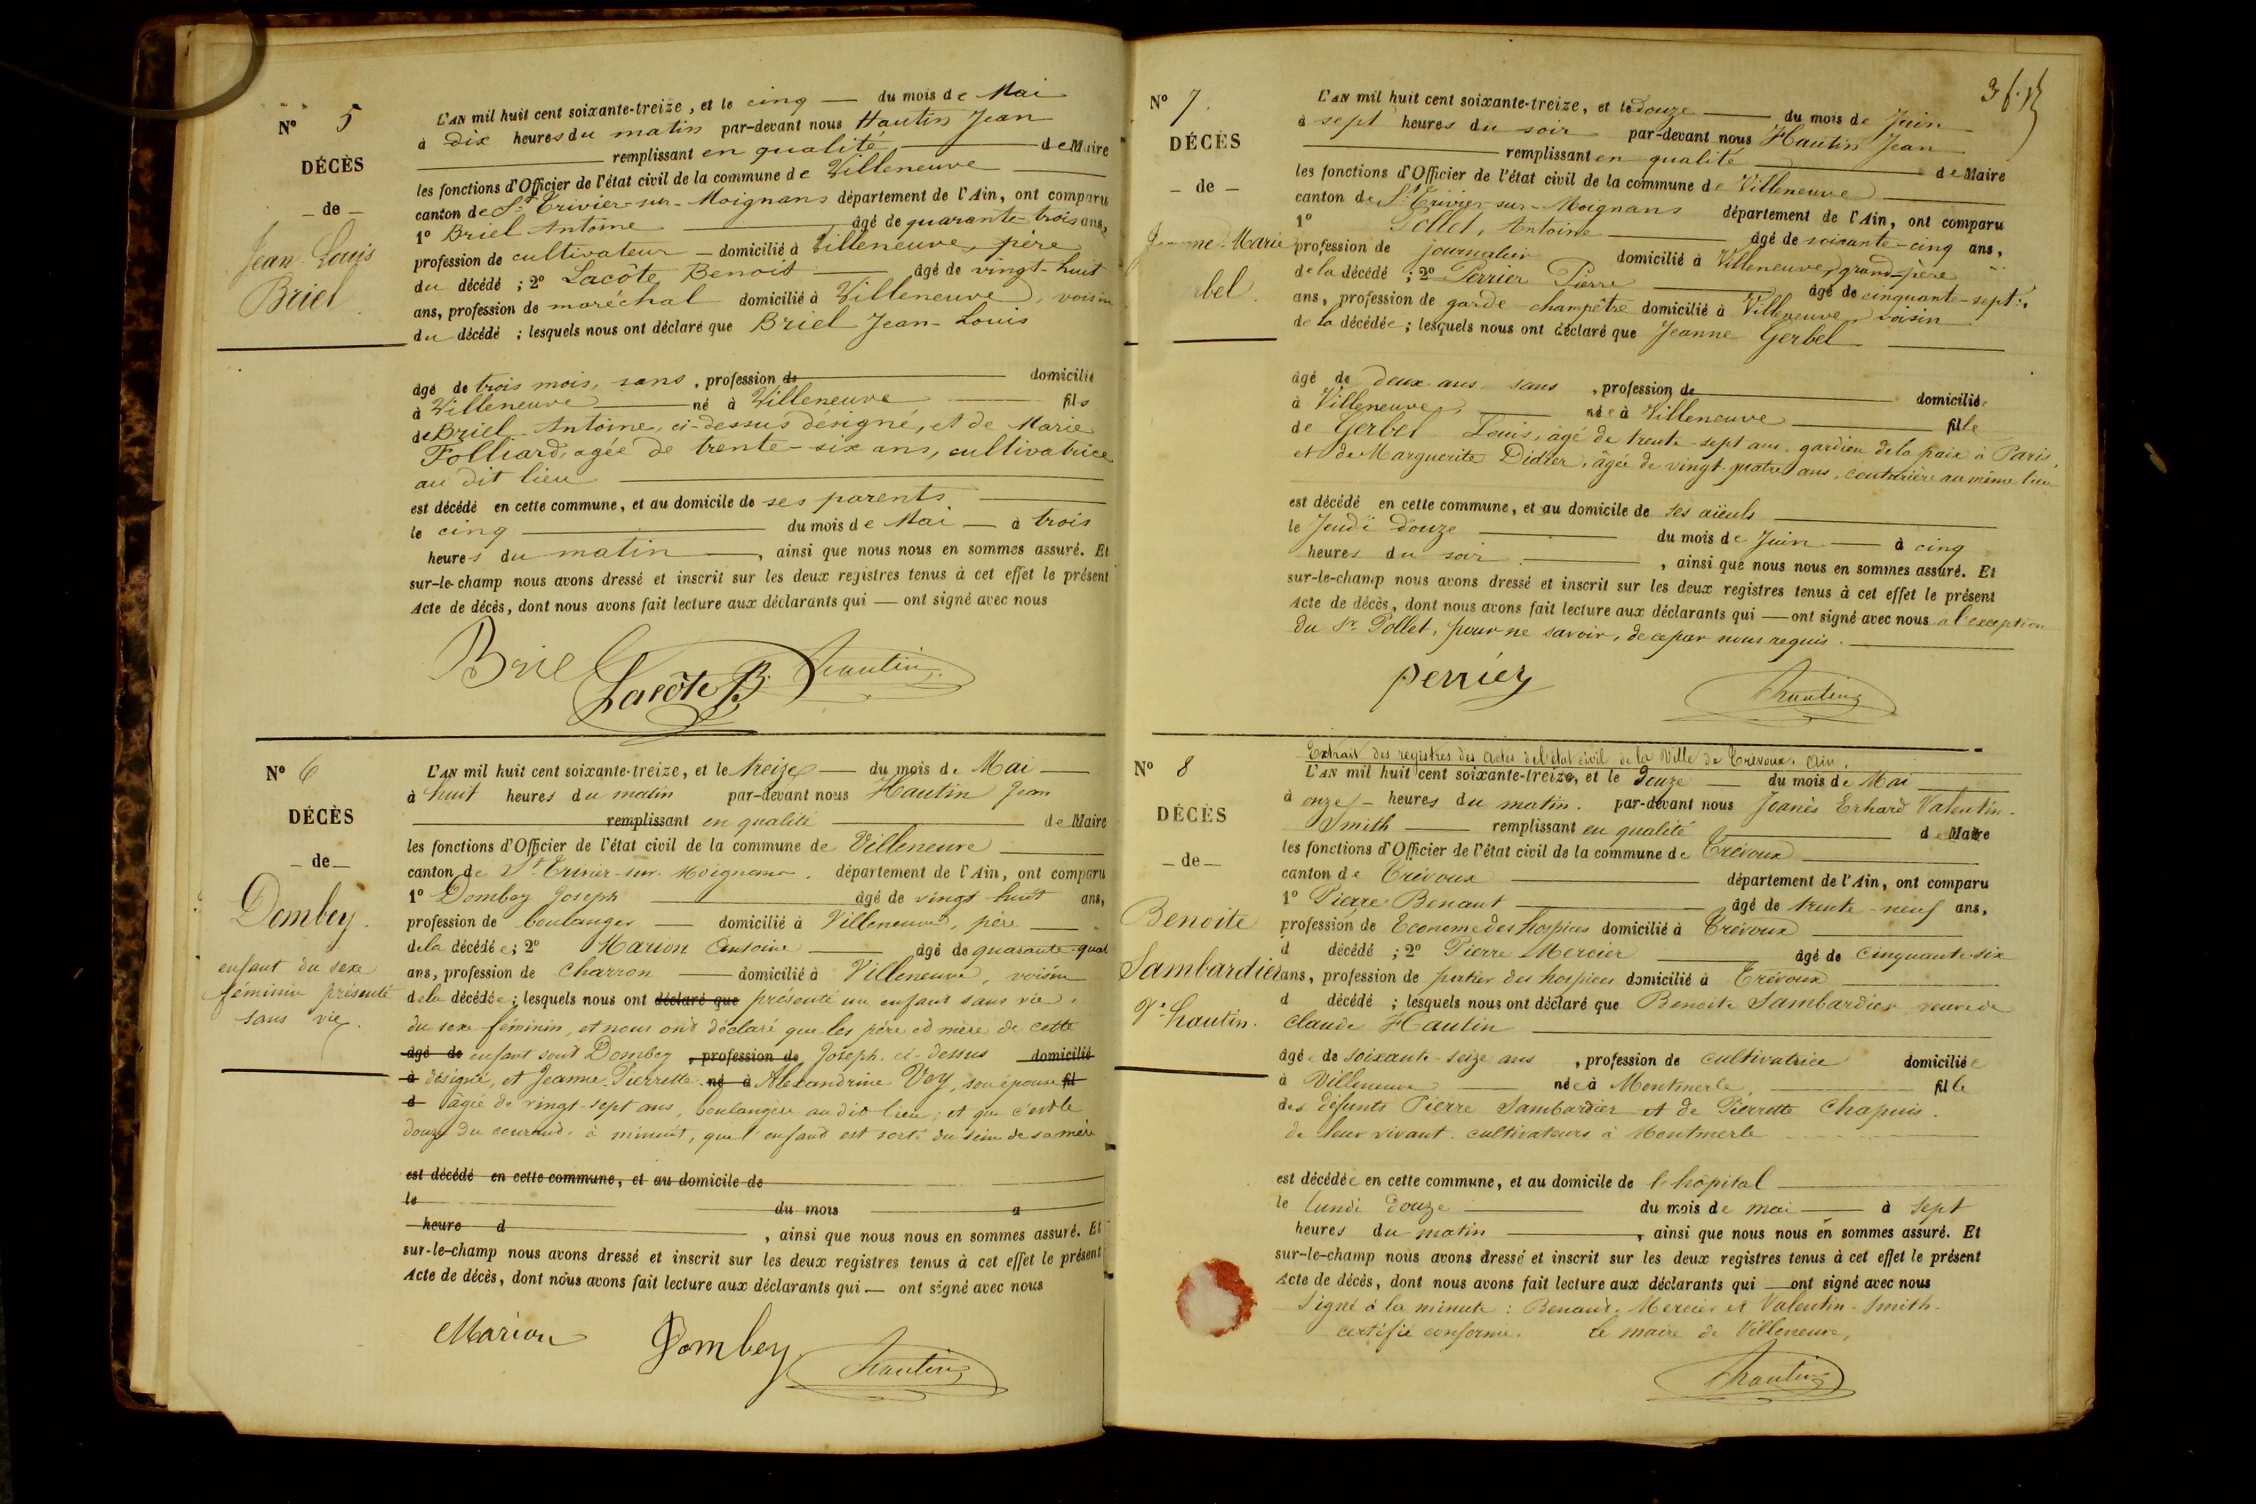 N° 5
DÉCÈS
de
Jean-Louis
Briel
L'AN mil huit cent soixante-treize, et le cinq du mois de Mai
à dix heures du matin par-devant nous Hautin Jean
remplissant en qualité de Maire
les fonctions d'Officier de l'état civil de la commune de Villeneuve
canton de St Trivier-sur-Moignans département de l'Ain, ont comparu
1° Briel Antoine âgé de quarante-trois ans,
profession de cultivateur domicilié à Villeneuve, père
du décédé ; 2° Lacôte Benoit âgé de vingt-huit
ans, profession de maréchal domicilié à Villeneuve, voisin
du décédé ; lesquels nous ont déclaré que Briel Jean-Louis
âgé de trois mois, sans, profession de domicilié
à Villeneuve né à Villeneuve fils
de Briel Antoine, ci-dessus désigné, et de Marie
Folliard, agée de trente-six ans, cultivatrice
au dit lieu
est décédé en cette commune, et au domicile de ses parents
le cinq du mois de Mai à trois
heures du matin, ainsi que nous nous en sommes assuré. Et
sur-le-champ nous avons dressé et inscrit sur les deux registres tenus à cet effet le présent
Acte de décès, dont nous avons fait lecture aux déclarants qui ont signé avec nous
Briel Lacôte B. Hautin
N° 6
DÉCÈS
de
Dombey.
enfant du sexe
féminin présenté
sans vie.
L'AN mil huit cent soixante-treize, et le treize du mois de Mai
à huit heures du matin par-devant nous Hautin Jean
remplissant en qualité de Maire
les fonctions d'Officier de l'état civil de la commune de Villeneuve
canton de St Trivier-sur-Moignans. département de l'Ain, ont comparu
1° Dombey Joseph âgé de vingt-huit ans,
profession de boulanger domicilié à Villeneuve, père
de la décédée ; 2° Marion Antoine âgé de quarante-quat
ans, profession de charron domicilié à Villeneuve, voisin
de la décédée ; lesquels nous ont déclaré que présenté un enfant sans vie,
du sexe féminin, et nous ont déclaré que les père et mère de cette
âgé de enfant sont Dombey, profession de Joseph. ci-dessus domicilié
à désigné, et Jeanne Pierrette né à Alexandrine Vey, son épouse fil
d âgée de vingt-sept ans, boulangère au dit lieu ; et que c'est le
douze du courant, à minuit, que l'enfant est sorti du sein de sa mère
est décédé en cette commune, et au domicile de
le du mois à
heure d, ainsi que nous nous en sommes assuré. Et
sur-le-champ nous avons dressé et inscrit sur les deux registres tenus à cet effet le présent
Acte de décès, dont nous avons fait lecture aux déclarants qui ont signé avec nous
Marion Dombey Hautin
N° 7.
DÉCÈS
de
Jeanne-Marie
bel.
L'AN mil huit cent soixante-treize, et le douze du mois de Juin
à sept heures du soir par-devant nous Hautin Jean
remplissant en qualité de Maire
les fonctions d'Officier de l'état civil de la commune de Villeneuve
canton de St Trivier-sur-Moignans département de l'Ain, ont comparu
1° Pollet, Antoine âgé de soixante-cinq ans,
profession de journalier domicilié à Villeneuve, grand-père
de la décédé ; 2° Perrier Pierre âgé de cinquante-sept
ans, profession de garde-champêtre domicilié à Villeneuve, voisin
de la décédée ; lesquels nous ont déclaré que Jeanne Gerbel
âgé de deux ans, sans, profession de domicilié
à Villeneuve, née à Villeneuve fille
de Gerbel Louis, âgé de trente-sept ans, gardien de la paix à Paris,
et de Marguerite Didier, âgée de vingt-quatre ans, couturière au même lieu
est décédé en cette commune, et au domicile de ses aïeuls
le Jeudi douze du mois de Juin à cinq
heures du soir, ainsi que nous nous en sommes assuré. Et
sur-le-champ nous avons dressé et inscrit sur les deux registres tenus à cet effet le présent
Acte de décès, dont nous avons fait lecture aux déclarants qui ont signé avec nous à l'exception
du Sr. Pollet, pour ne savoir, de ce par nous requis.
Perrier Hautin
N° 8
DÉCÈS
de
Benoite
Sambardier
Ve Hautin.
Extrait des registres des actes de l'état civil de la Ville de Trévoux, Ain.
L'AN mil huit cent soixante-treize, et le Douze du mois de Mai
à onze heures du matin. par-devant nous Joanès Erhard Valentin-
Smith remplissant en qualité de Maire
les fonctions d'Officier de l'état civil de la commune de Trévoux
canton de Trévoux département de l'Ain, ont comparu
1° Pierre Benaut âgé de trente-neuf ans,
profession de Econome des hospices domicilié à Trévoux
d décédé ; 2° Pierre Mercier âgé de cinquante-six
ans, profession de portier des hospices domicilié à Trévoux
d décédé ; lesquels nous ont déclaré que Benoite Sambardier veuve de
Claude Hautin
âgée de soixante-seize ans, profession de cultivatrice domiciliée
à Villeneuve née à Montmerle fille
des défunts Pierre Sambardier et de Pierrette Chapuis.
de leur vivant cultivateurs à Montmerle
est décédée en cette commune, et au domicile de l'hopital
le lundi douze du mois de mai à sept
heures du matin, ainsi que nous nous en sommes assuré. Et
sur-le-champ nous avons dressé et inscrit sur les deux registres tenus à cet effet le présent
Acte de décès, dont nous avons fait lecture aux déclarants qui ont signé avec nous
Signé à la minute : Benaut, Mercier et Valentin-Smith.
certifié conforme. Le maire de Villeneuve,
Hautin